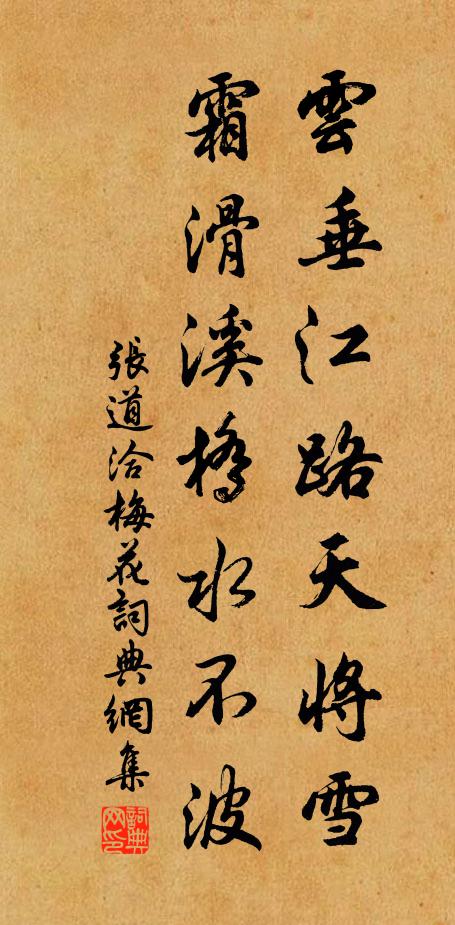 雲垂江路天將雪
霜滑溪橋水不波
張道洽梅花詞典網集
詞典
网印